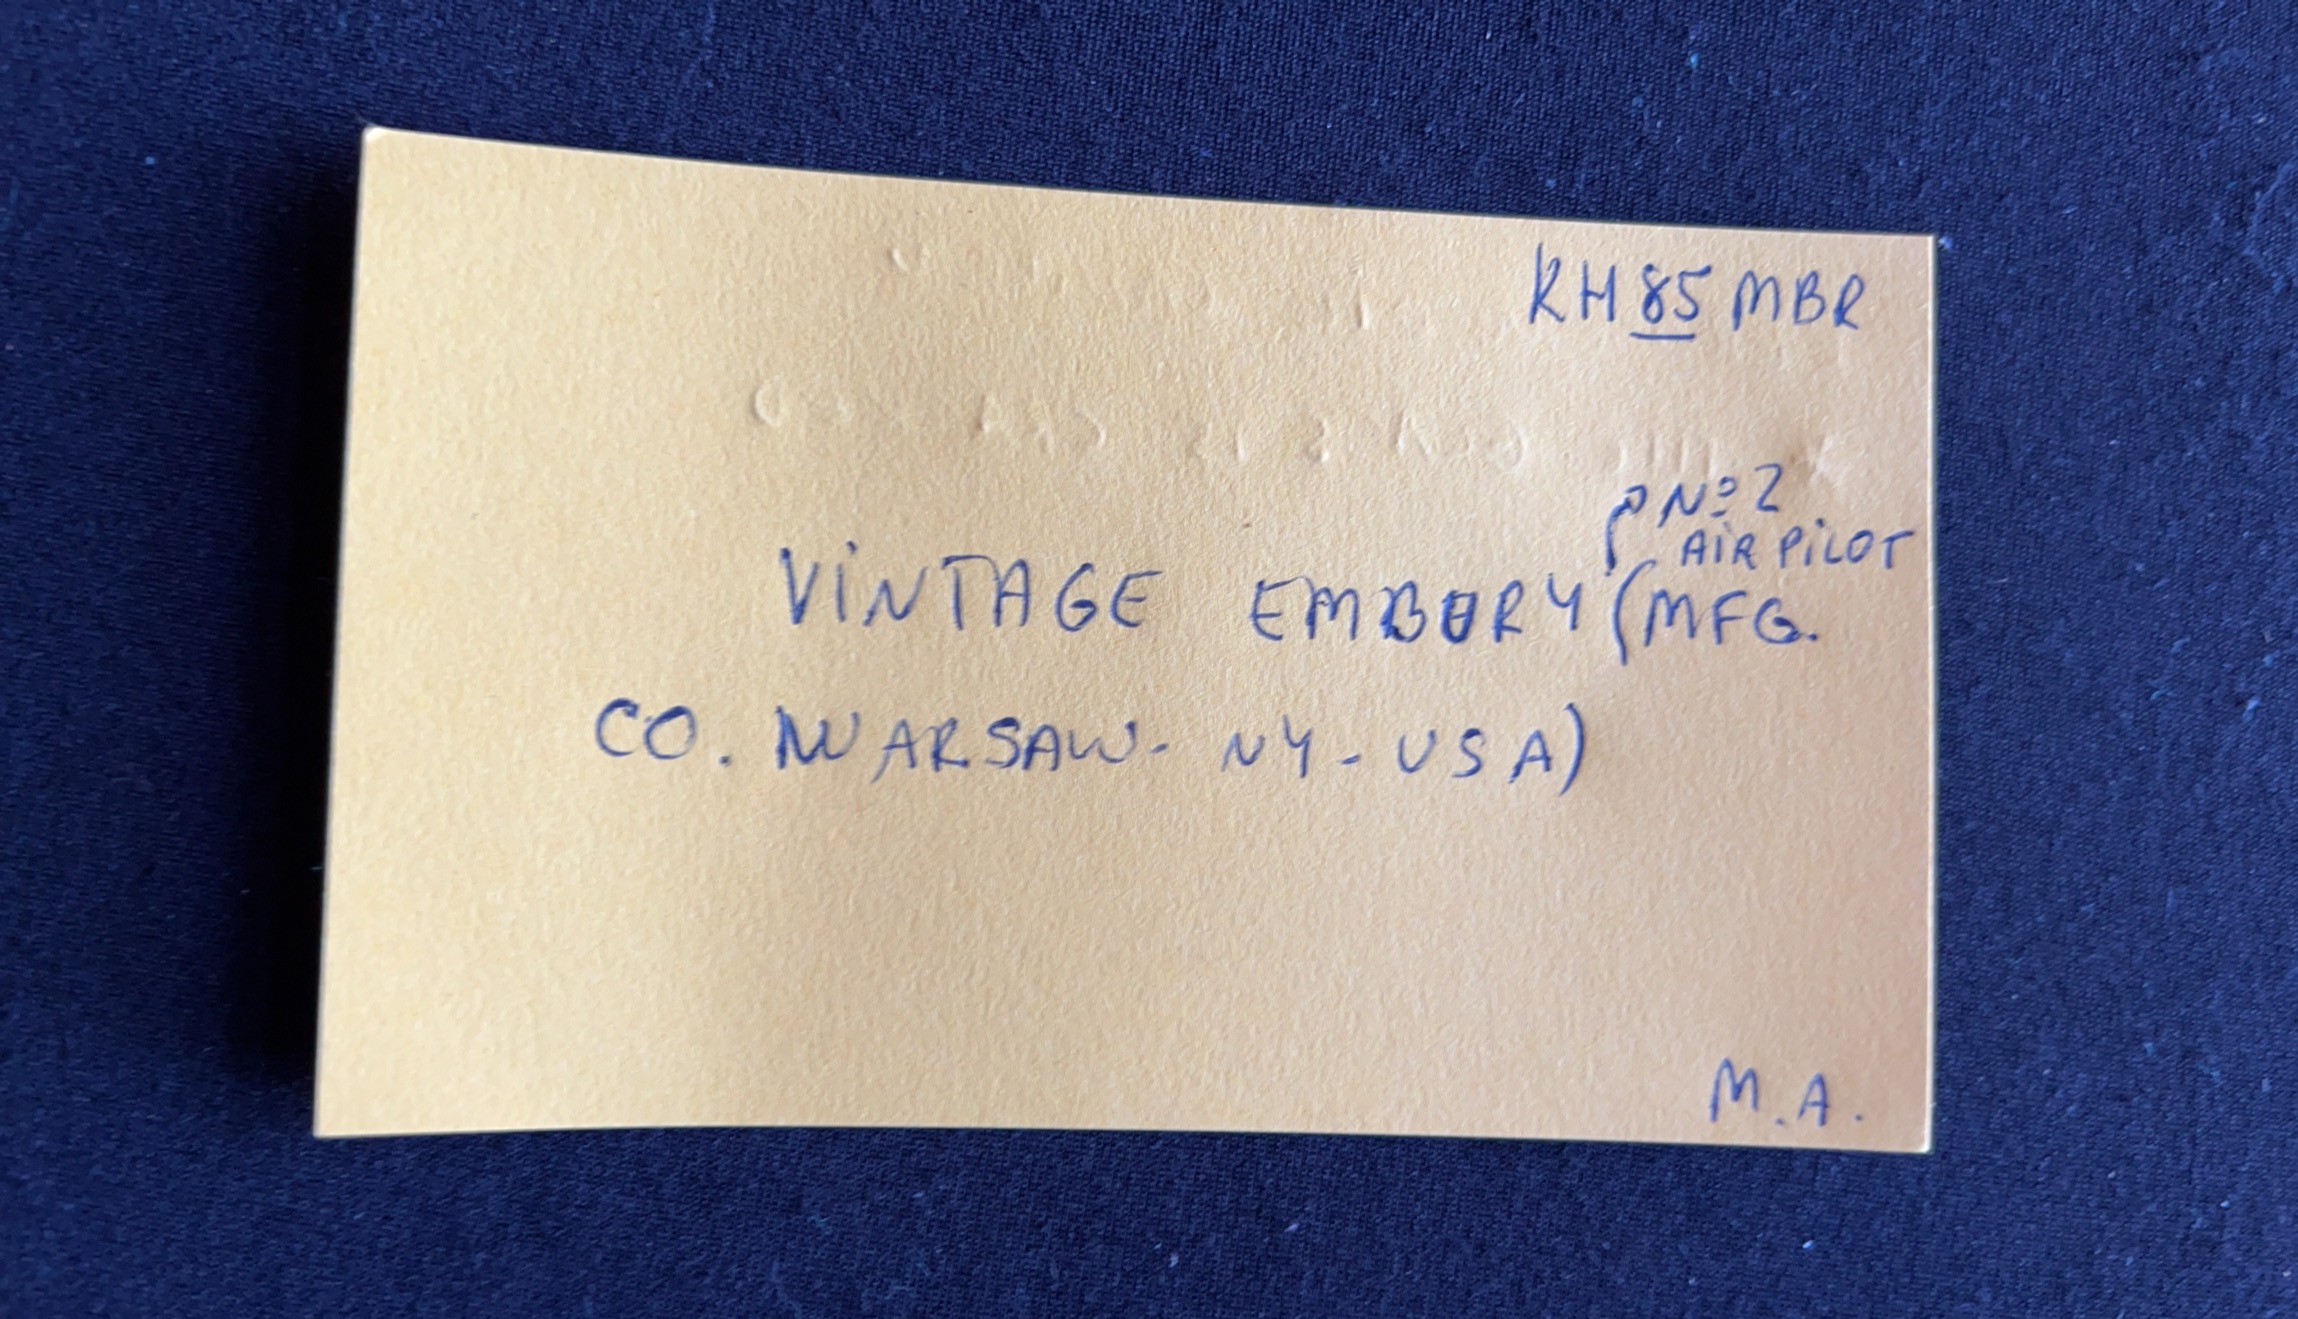 KH85 MBR
Nº 2
AIR PILOT
VINTAGE EMBURY (MFG.
CO. WARSAW - NY - USA)
M.A.